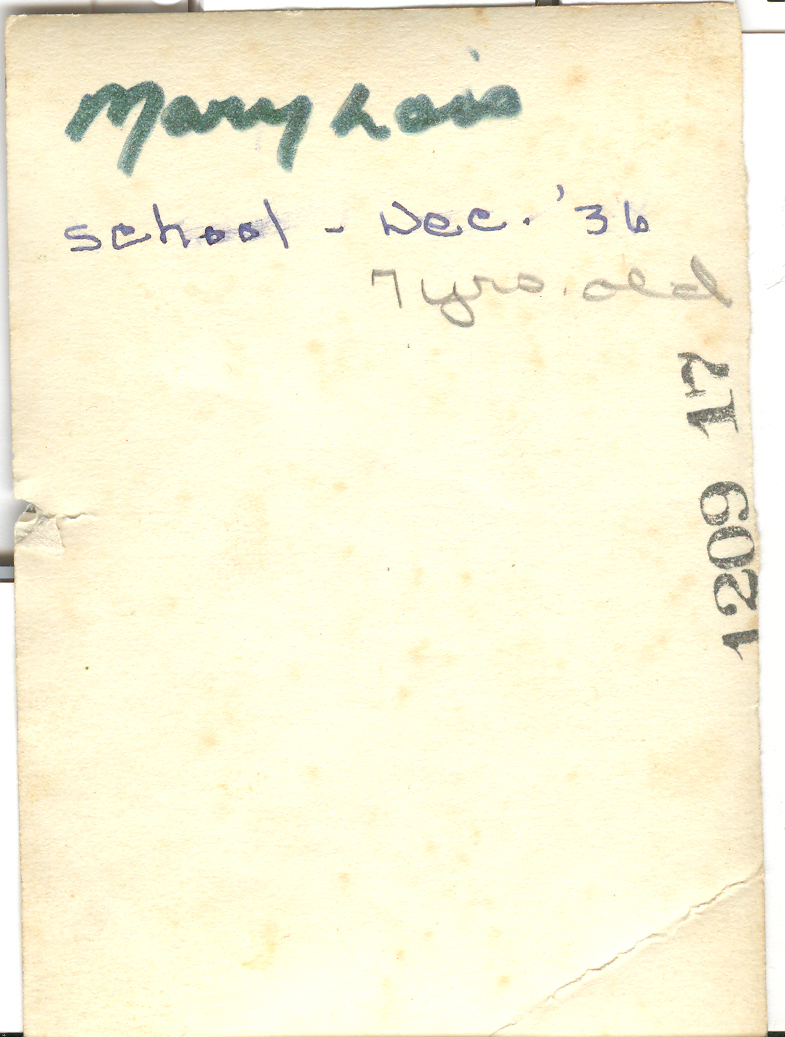 Mary Lois
school - Dec. '36
7 yrs. old
1209 17